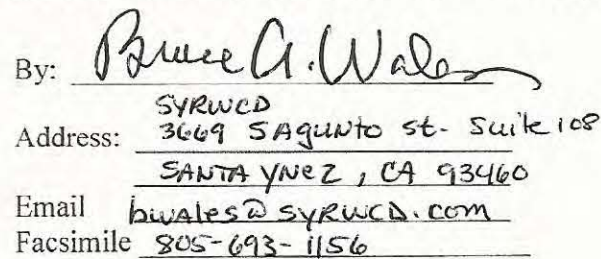 By: Bruce A. Wales
SYRWCD
Address: 3669 SAgunto st. Suite 108
SANTA YNEZ, CA 93460
Email bwales@syrwcd.com
Facsimile 805-693-1156